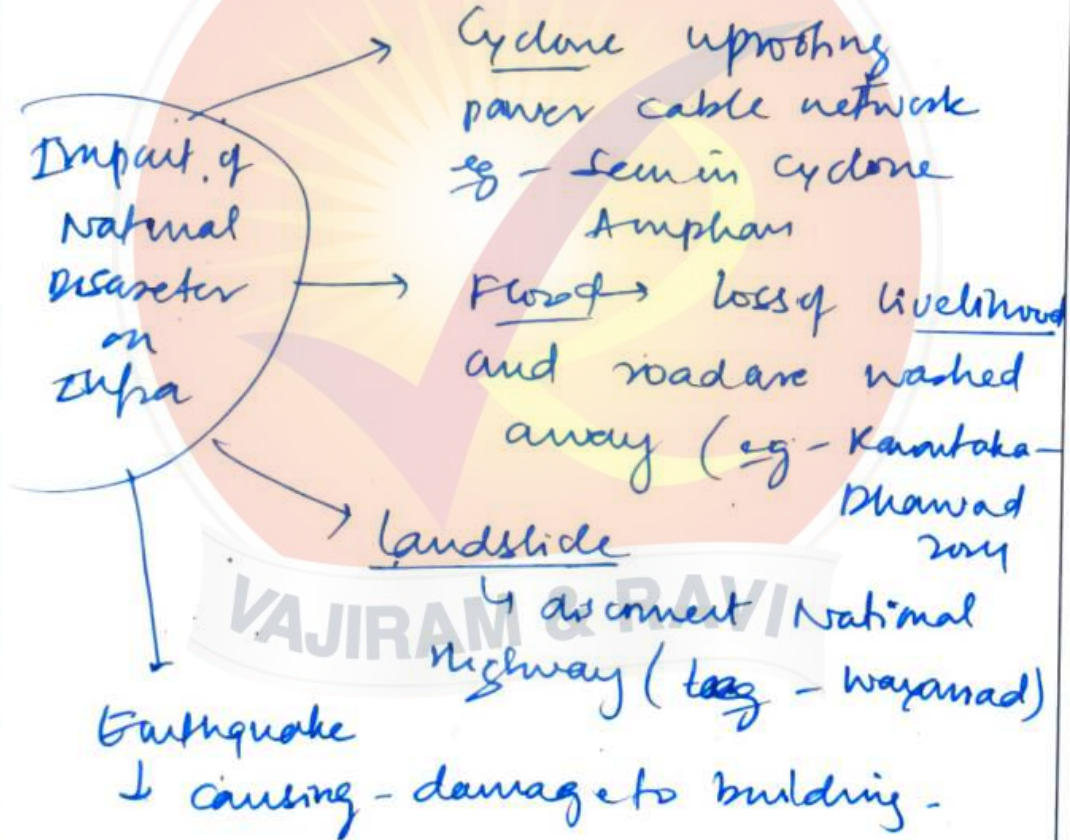 Impact of
Natural
Disaster
on
Infra
Cyclone uprooting
power cable network
eg - seen in cyclone
Amphan
Flood → loss of livelihood
and road are washed
away (eg - Karnataka -
Dharwad
2024
Landslide
↳ disconnect National
Highway (eg - Wayanad)
Earthquake
↓ causing - damage to building.
VAJIRAM & RAVI